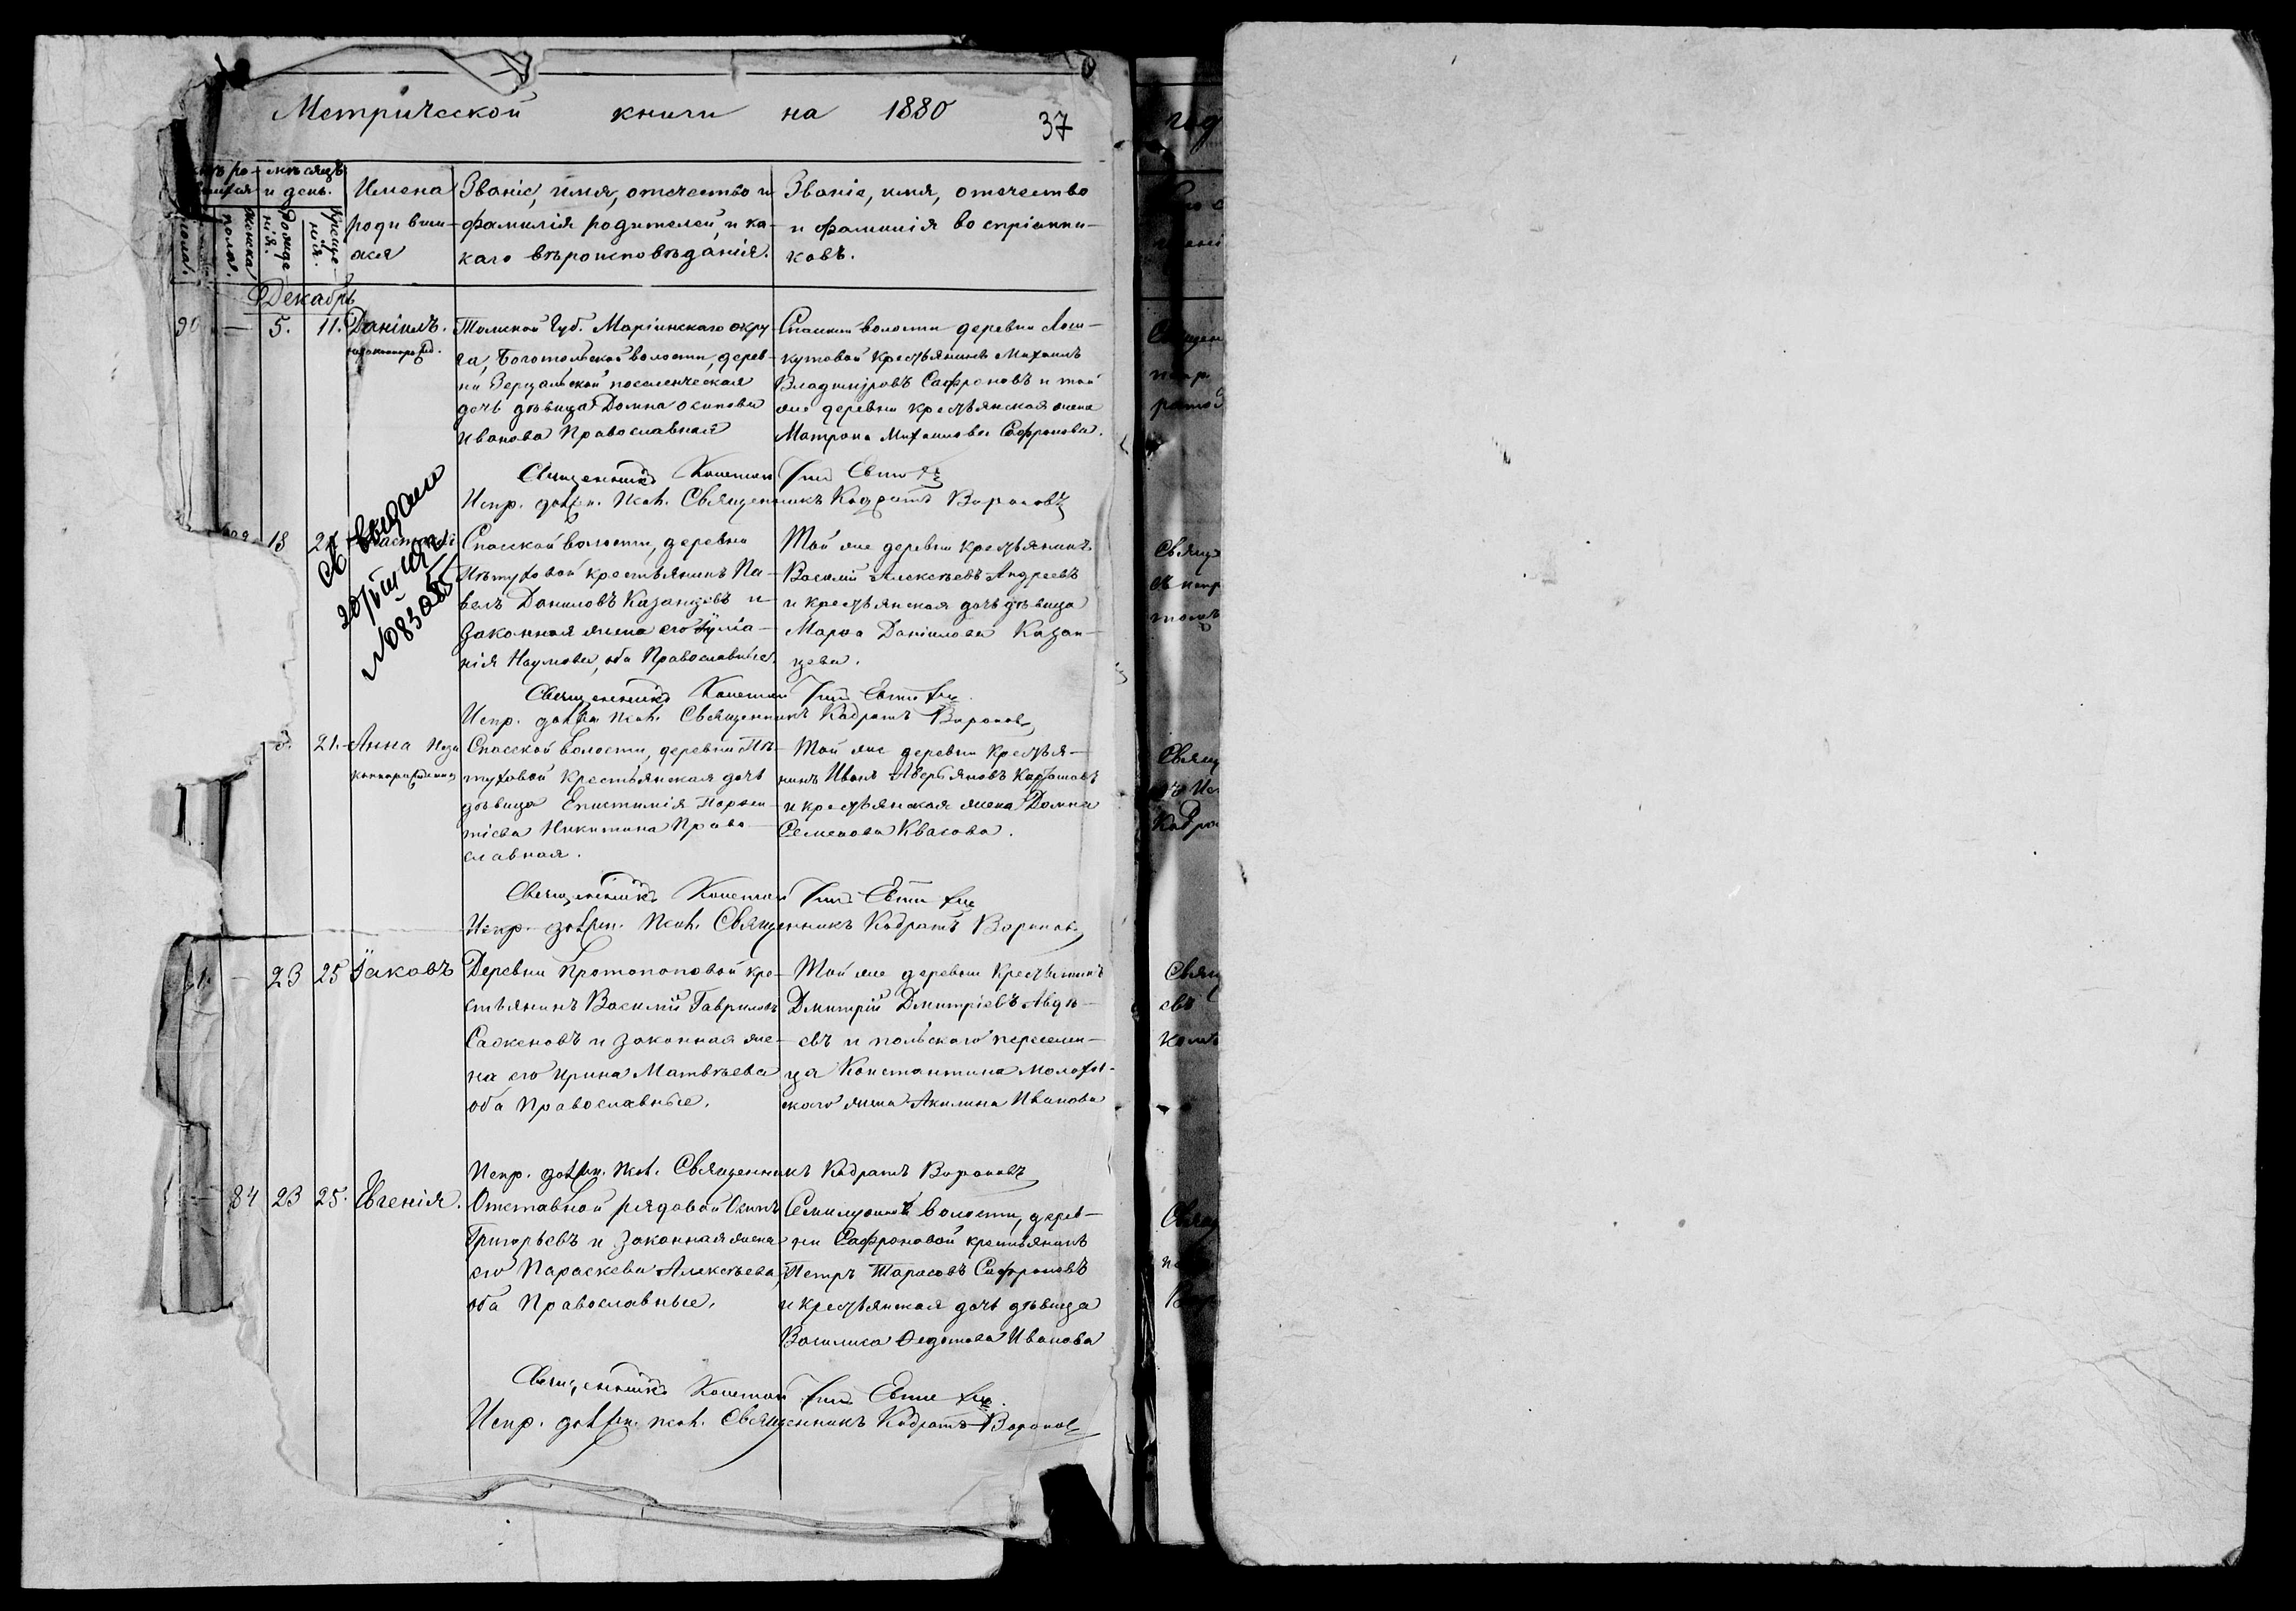 Метрической книги на 1880
37
мѣсяцъ и день.
Имена родившихся
Званіе, имя, отечество и
фамилія родителей, и ка-
каго вѣроисповѣданія.
Званіе, имя, отечество
и фамилія воспріимни-
ковъ.
женска пола.
рожде-нія.
креще-нія.
Декабрь
90 — 5. 11. Даніилъ.
незаконнорожд.
Томской Губ. Маріинскаго окру-
га, Боготольской волости, дерев-
ни Зерцальской поселенческая
дочь дѣвица Домна Осипова
Иванова Православная
Спасской волости деревни
кутовой крестьянинъ Михаилъ
Владиміровъ Сафроновъ и той
же деревни крестьянская жена
Матрона Михаилова Сафронова.
Священникъ
Испр. должн. псал. Священникъ Кодратъ Вороновъ
18 21
Спасской волости, деревни
Пѣтуховой крестьянинъ Па-
велъ Даниловъ Казанцевъ и
законная жена его Іуліа-
нія Наумова, оба Православные.
Той же деревни крестьянинъ
Василій Алексѣевъ Андреевъ
и крестьянская дочь дѣвица
Марѳа Даніилова Казан-
цева.
выдано
№ 083
Священникъ
Испр. должн. псал. Священникъ Кодратъ Вороновъ
21. Анна неза-
коннорожденная
Спасской волости, деревни Пѣ-
туховой крестьянская дочь
дѣвица Епистимія Парѳен-
тіева Никитина Право-
славная.
Той же деревни крестья-
нинъ Иванъ Аверьяновъ Карташовъ
и крестьянская жена Домна
Семенова Квасова.
Священникъ
Испр. должн. псал. Священникъ Кодратъ Вороновъ
1. — 23 25 Іаковъ
Деревни Протопоповой кре-
стьянинъ Василій Гавриловъ
Саженовъ и законная же-
на его Ирина Матвѣева
оба Православные.
Той же деревни крестьянинъ
Дмитрій Дмитріевъ Авдѣ-
евъ и польскаго переселен-
ца Константина
жена Акилина Иванова
Испр. должн. псал. Священникъ Кодратъ Вороновъ
— 84 23 25. Евгенія.
Отставной рядовой Осипъ
Григорьевъ и законная жена
его Параскева Алексѣева,
оба Православные.
Семилужной волости, дерев-
ни Сафроновой крестьянинъ
Петръ Тарасовъ Сафроновъ
и крестьянская дочь дѣвица
Василиса Ѳедотова Иванова
Священникъ
Испр. должн. псал. Священникъ Кодратъ Вороновъ